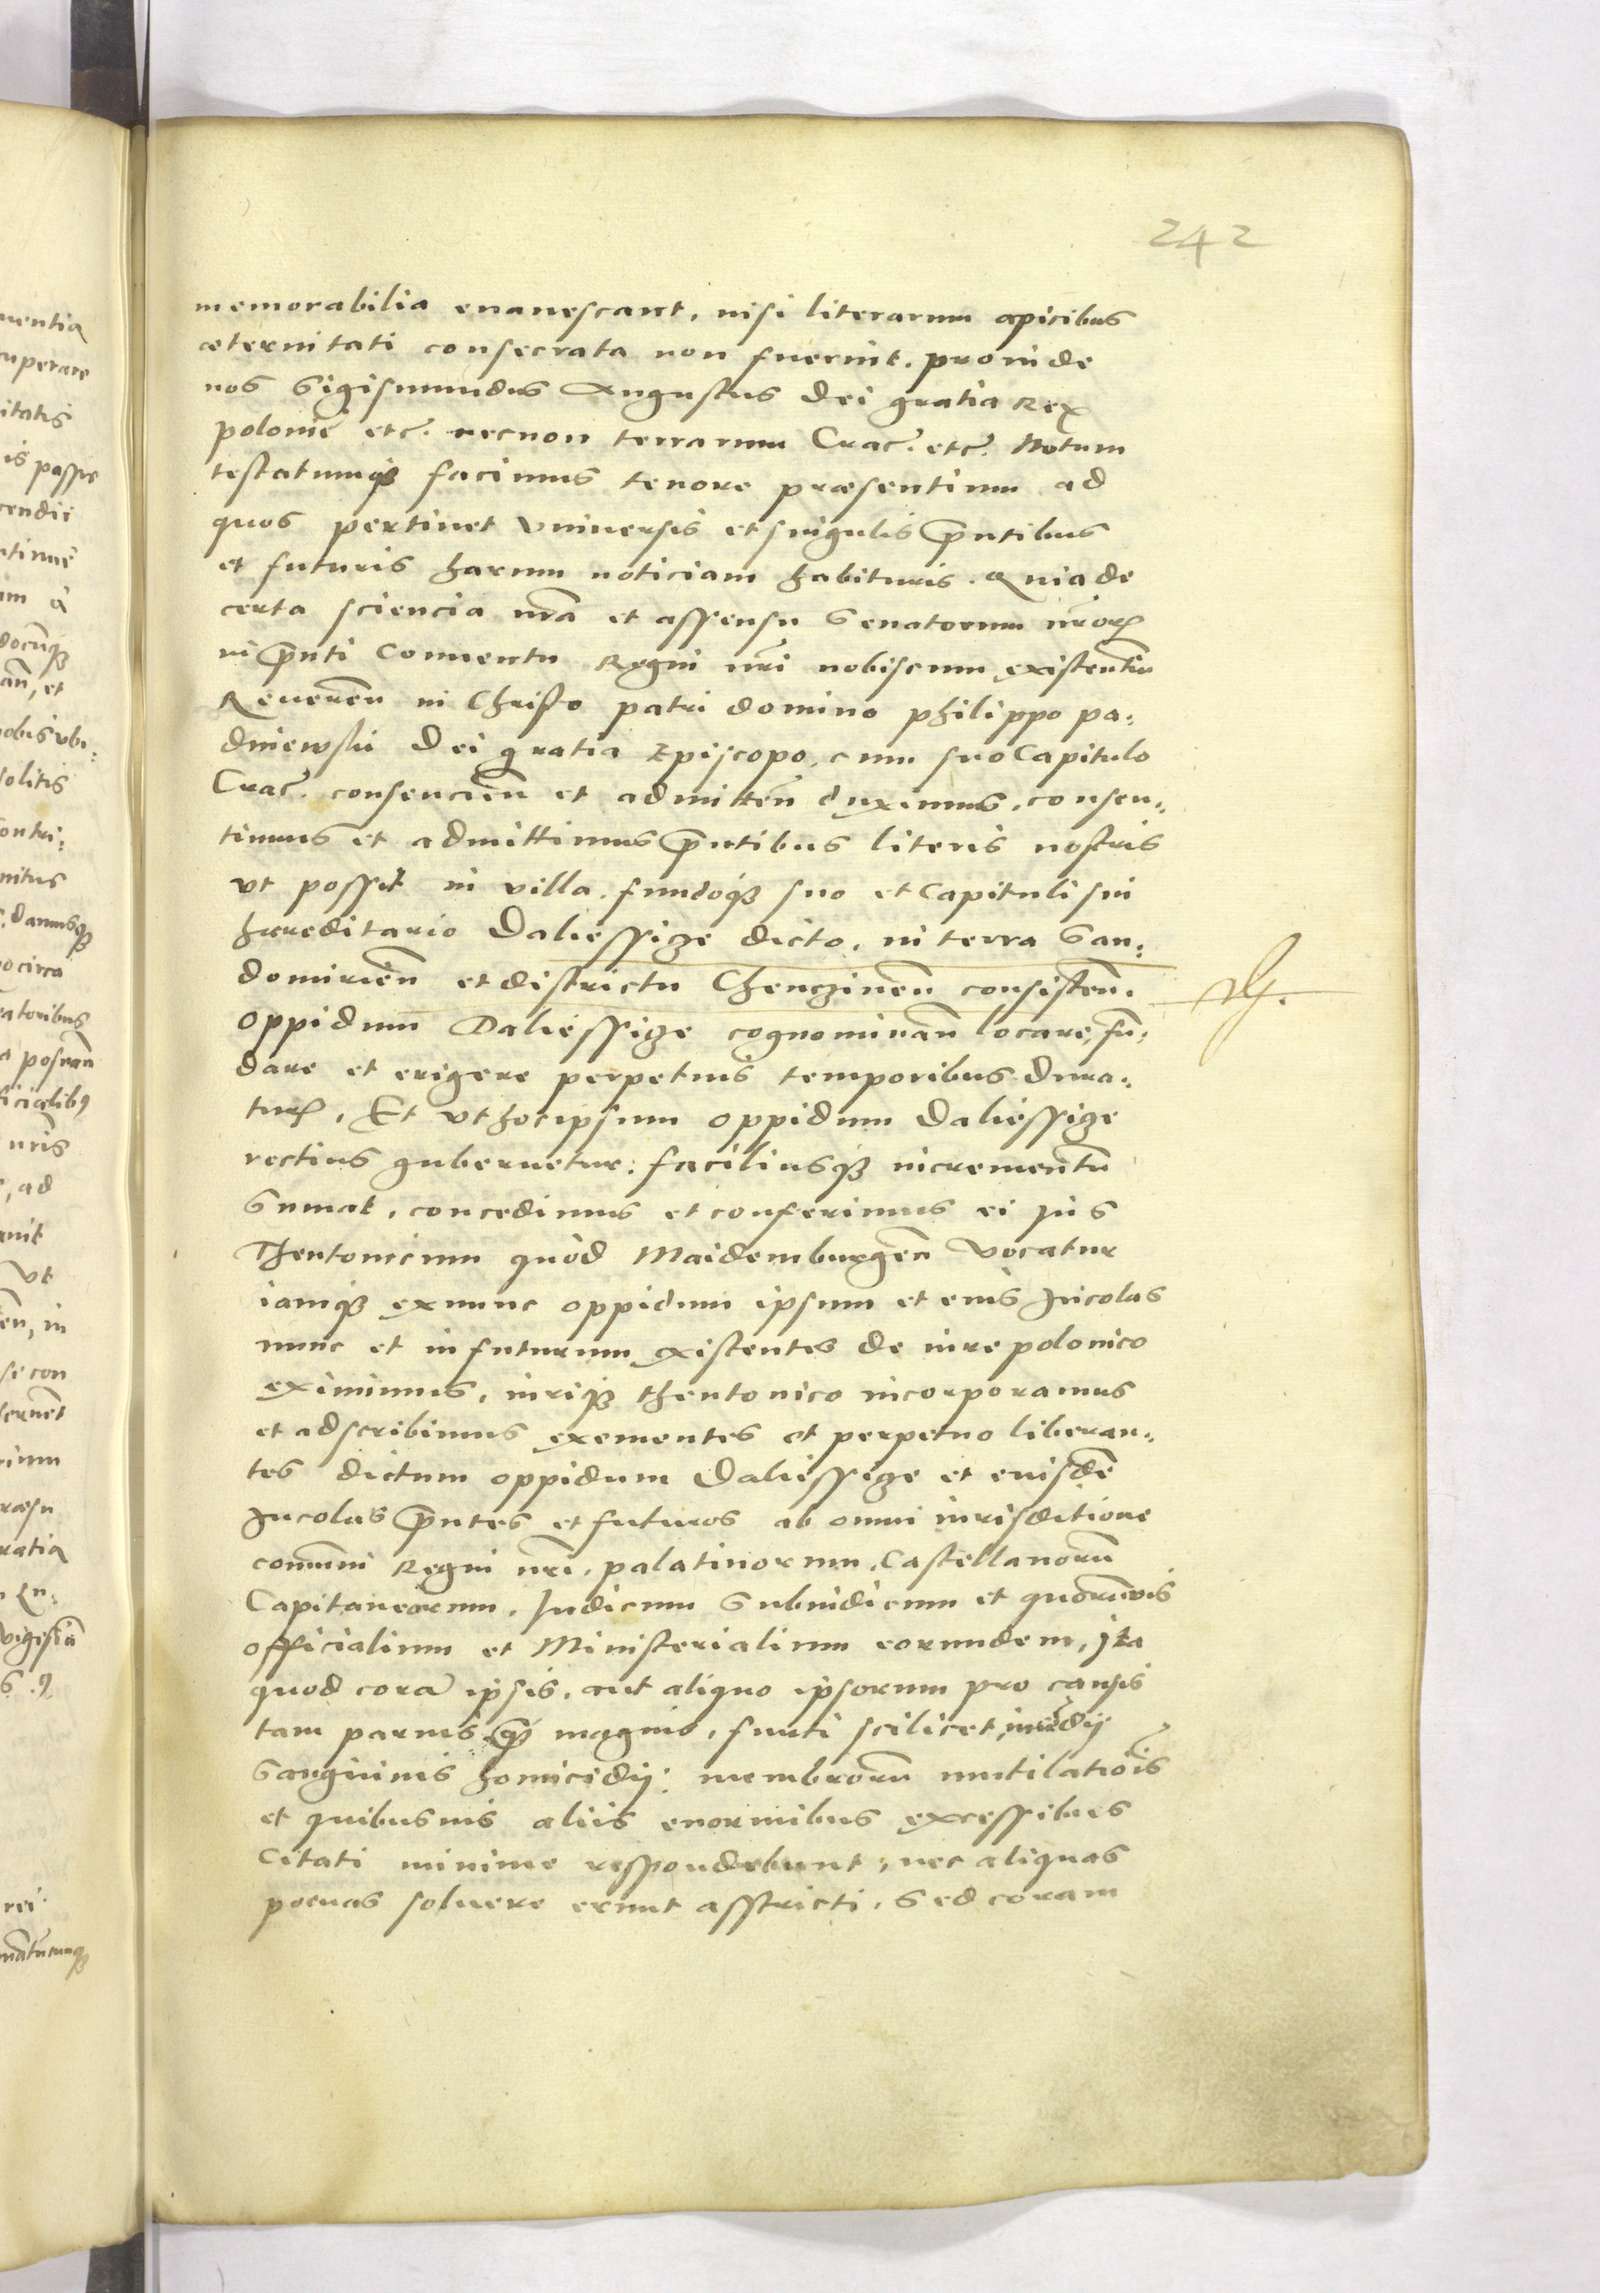 242
memorabilia euanescant, nisi literarum apicibus
æternitati consecrata non fuerint. proinde
nos Sigismundus Augustus Dei gratia Rex
polonie etc. necnon terrarum Crac. etc. Notum
testatumq3 facimus tenore præsentium ad
quos pertinet vniuersis et singulis pñtibus
et futuris harum noticiam habituris. Quia de
certa sciencia nrã et assensu Senatorum nrõr
in pñti Conuentu Regni nri nobiscum existentiũ
Reueren in Christo patri domino philippo pa:
dniewski Dei gratia Episcopo, cum suo Capitulo
Crac. consencien et admitten duximus, consen:
timus et admittimus pñtibus literis nostris
vt possit in villa fundoq3 suo et Capituli sui
hæreditario Daliessize dicto, in terra San:
domirien et districtu Chenczinen consisten.
oppidum Daliessize cognominan locare, fũ:
dare et erigere perpetuis temporibus dura:
tur. Et vt hoc ipsum oppidum Daliessize
rectius gubernetur, faciliusq3 incrementũ
Sumat, concedimus et conferimus ei jus
Theutonicum quod Maidemburgen vocatur
iamq3 ex nunc oppidum ipsum et eius Incolas
nunc et in futurum existentes de iure polonico
eximimus, iuriq3 theutonico incorporamus
et adscribimus exementes et perpetuo liberan:
tes dictum oppidum Daliessize et eiusdẽ
Incolas pñtes et futuros ab omni iurisditione
comuni Regni nri, palatinorum, Castellanorũ
Capitaneorum, Judicum Subiudicum et quorumuis
officialium et Ministerialium eorundem, Ita
quod corã ipsis, aut aliquo ipsorum pro causis
tam paruis q3 magnis, furti scilicet, incẽdij
Sanguinis homicidij, membrorũ mutilatiõis
et quibusuis aliis enormibus excessibus
Citati minime respondebunt, nec aliquas
poenas soluere erunt asstricti, Sed coram